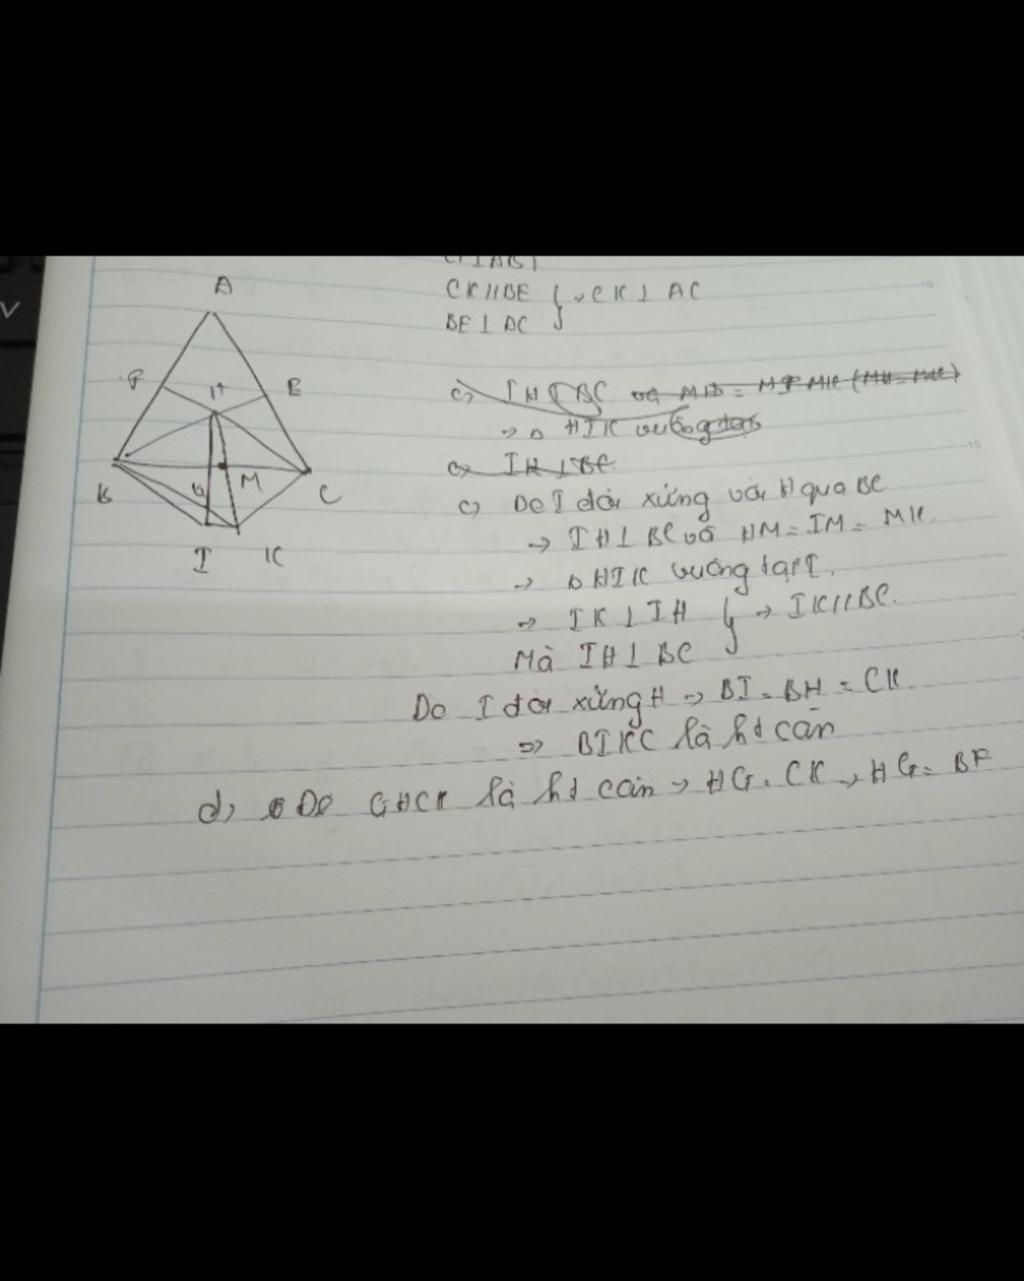 CK // BE } → CK ⊥ AC
BE ⊥ AC
A
F
H
E
B
G
M
C
I
K
c) IH ⊥ BC và
→ Δ HIK vuông
c) IH ⊥ BC
c) Do I đối xứng với H qua BC
→ IH ⊥ BC và HM = IM = MK.
→ Δ HIK vuông tại I.
→ IK ⊥ IH } → IK // BC.
Mà IH ⊥ BC
Do I đối xứng H → BI = BH = CK.
=> BIKC là ht cân
d) Do GHCK là ht cân → HG = CK → HG = BF